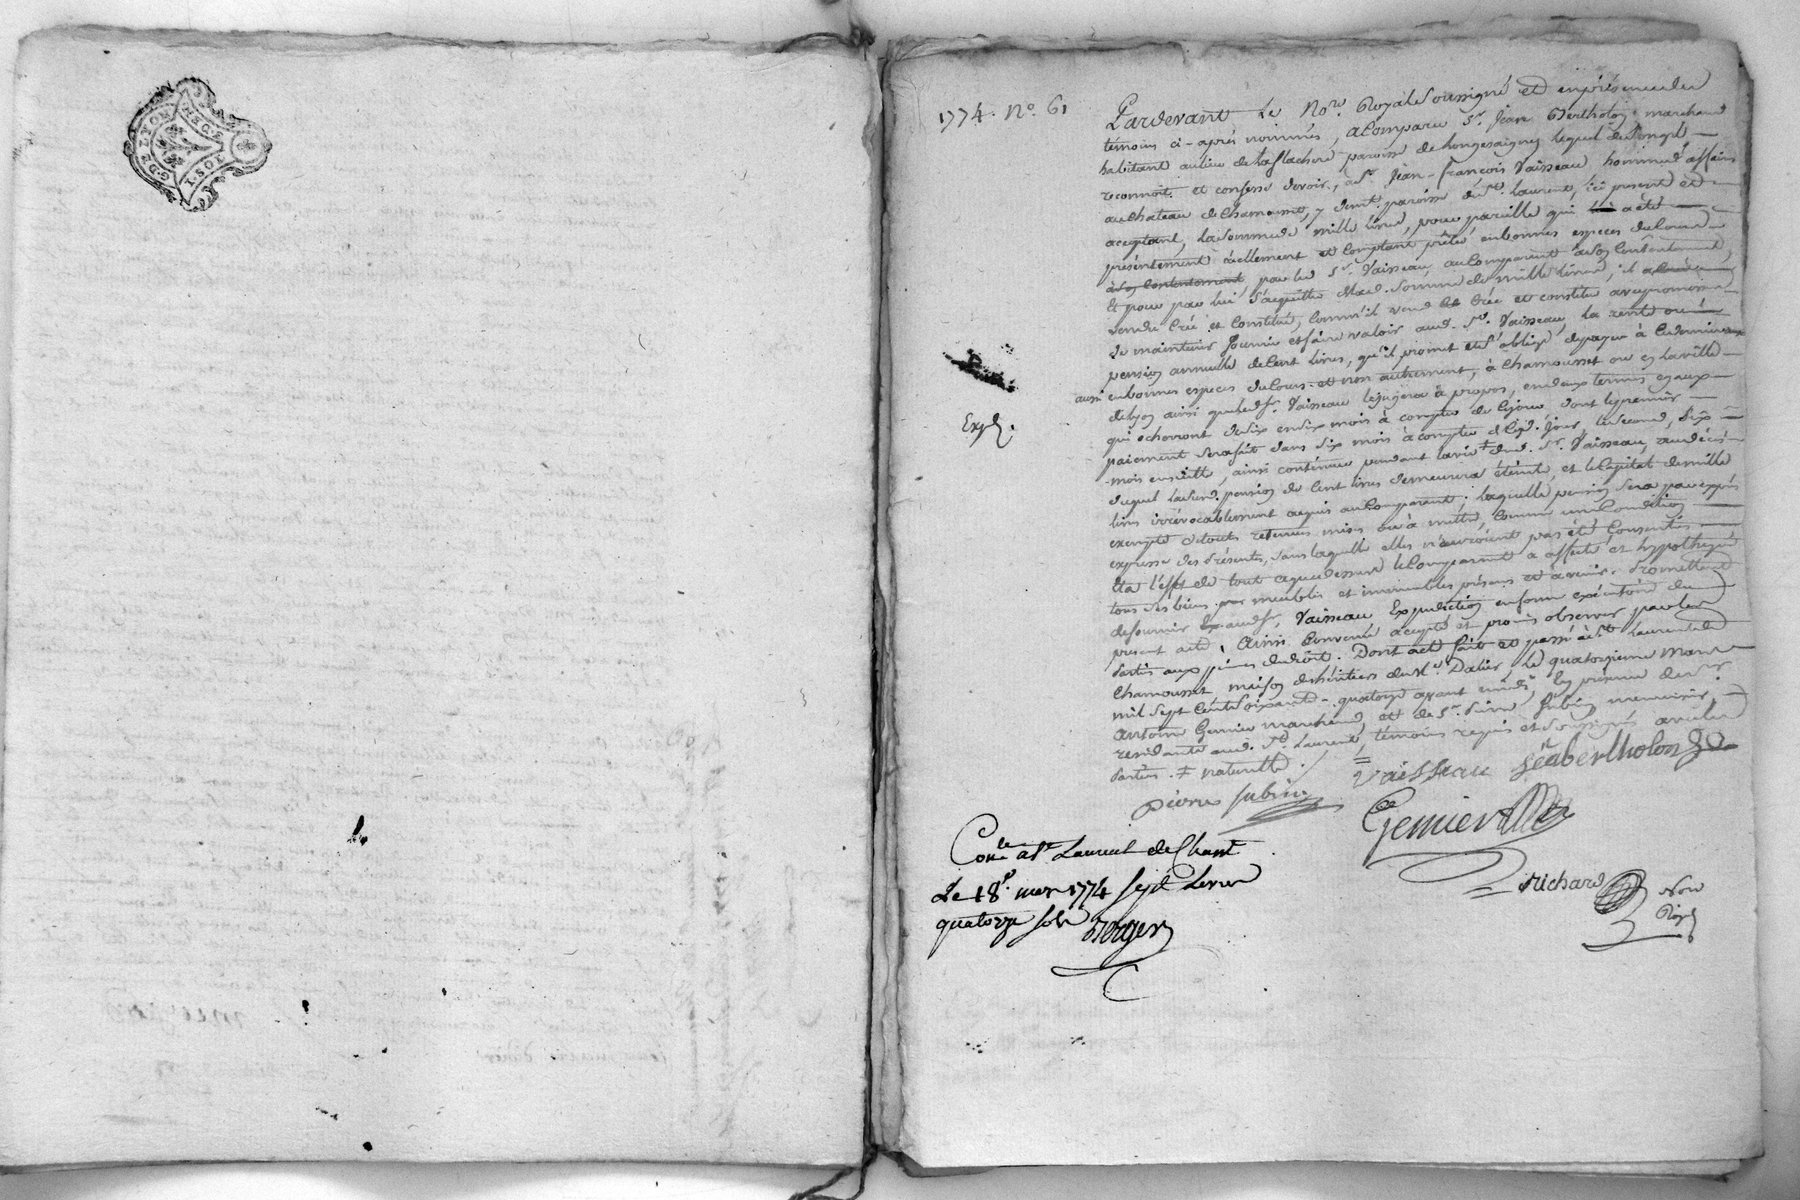 G. DE LYON
1. SOL
1774. No. 61
Pardevant Le No.re Royal Soussigné et en présence des
témoins ci-après nommés, a Comparu Sr. Jean Bertholon marchand
habitant au lieu de la flachere paroisse de Longesaigne lequel de Son gré
reconnoit et confesse devoir, à Sr. Jean-François Vaisseau homme d'affaires
au Chateau de Chamousset, y demt. paroisse de St. Laurent, ici présent et
acceptant, la Somme de mille livres, pour pareille qui a été
présentement réellement et Comptant prêté en bonnes especes du Cours
à Son Contentement, par led. Sr. Vaisseau, au Comparant à Son Contentement,
Et pour par lui S'acquitter de lad. Somme de mille livres, il a
vendu Créé et Constitué, Comm'il vend Crée et constitue avec promesse
de maintenir fournir et faire valoir aud. Sr. Vaisseau, la rente ou
pension annuelle de Cent livres, qu'il promet et s'oblige de payer à Ce dernier
aussi en bonnes especes du Cours et non autrement, à Chamousset ou en la ville
de Lyon ainsi que led. Sr. Vaisseau le jugera à propos, en deux termes egaux
qui echerront de Six en Six mois à compter de Ce jour dont le premier
paiement Sera fait dans Six mois à compter de Ced. Jour, le Second, Six
mois ensuitte, ainsi continuer pendant la vie ‡ dud. Sr. Vaisseau, au décès
duquel lad. pension de Cent livres demeurera éteinte, et le Capital de mille
livres irrévocablement acquis au Comparant; laquelle pension Sera payée
exempte de toutes retenues mises ou à mettre, Comme une Condition
expresse des présentes, Sans laquelle elles n'auroient pas été Consenties
Et à l'effet de tout ce que dessus le Comparant a affecté et hypothequé
tous Ses biens meubles et immeubles présens et à venir. Promettant
de fournir aud. Sr. Vaisseau Expedition en forme exécutoire du
present acte, Ainsi Convenu accepté et promis observer par les
Parties aux peines de droit. Dont acte fait et passé à St. Laurent de
Chamousset, maison des héritiers du Sr. Dalier Le quatorzieme Mars
mil Sept Cent Soixante-quatorze avant midi, En présence de Sr.
Antoine Gemier marchand, et de Sr. Pierre Subrin menuisier,
residants aud. St. Laurent, témoins requis et Soussignés avec les
Parties. ‡ naturelle.
Exp.
Vaisseau Jean bertholon
Pierre Subrin
Gemier
Con.le a St Laurent de Cham.t
Le 18e mars 1774 Sept Livres
quatorze Sols Berger
Richard
No.re
Royal